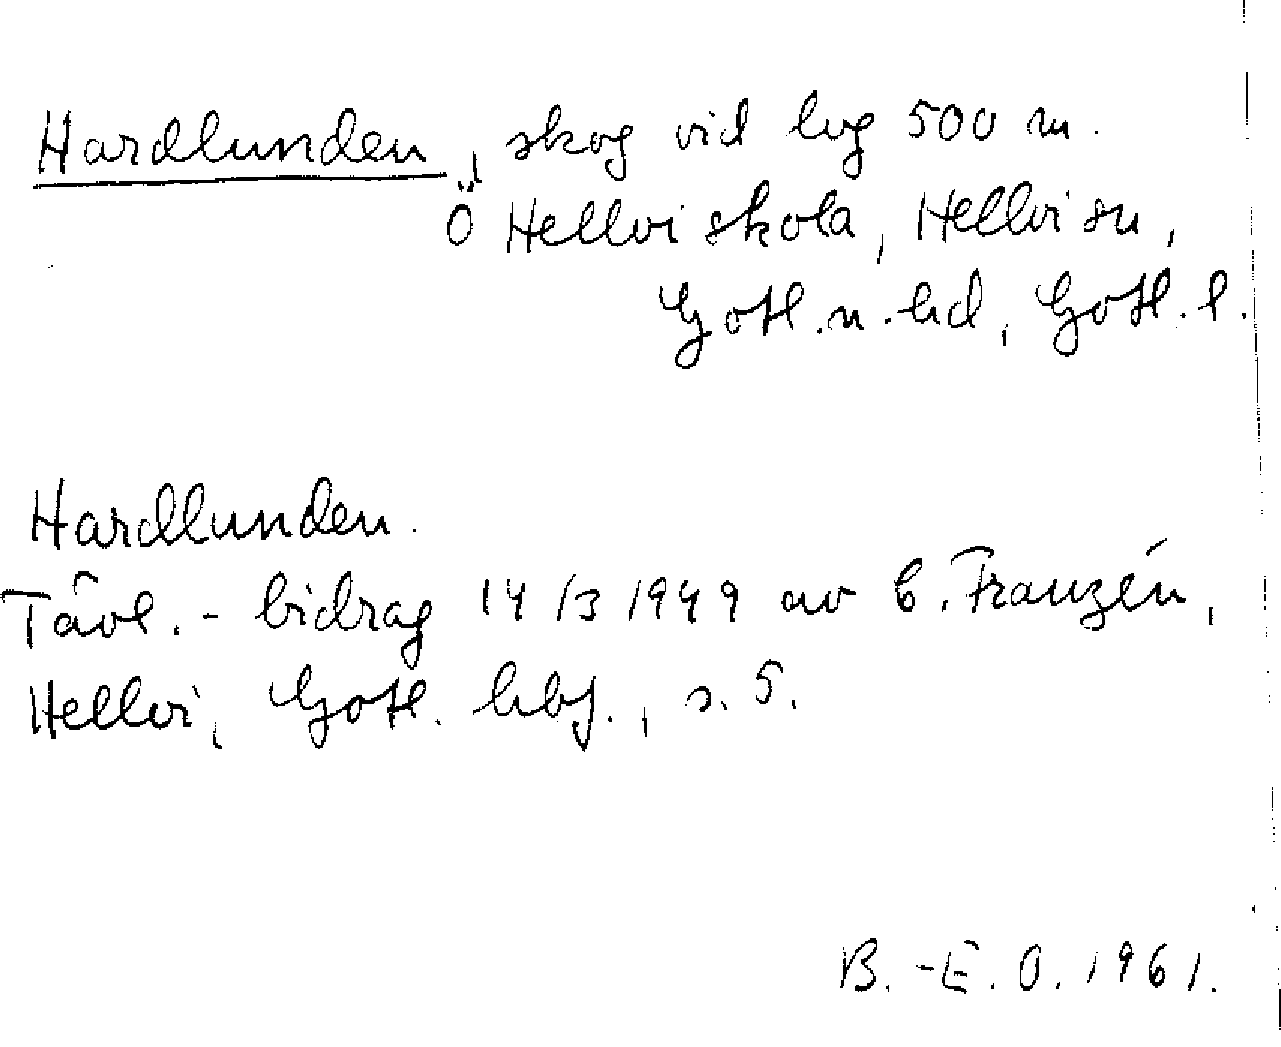 Hardlunden, skog vid lvg 500 m.
Ö Hellvi skola, Hellvi sn,
Gotl. n. hd, Gotl. l.
Hardlunden.
Tävl.- bidrag 14/3 1949 av B. Franzén,
Hellvi, Gotl. hbf., s. 5.
B.-E. O. 1961.